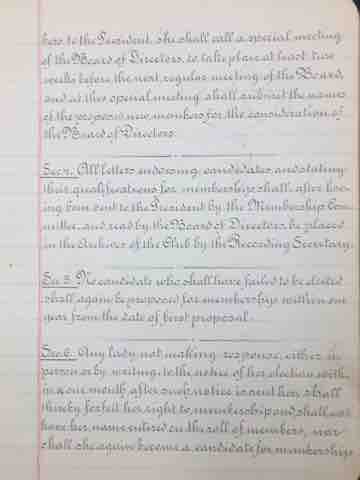 bers to the President, she shall call a special meeting
of the Board of Directors, to take place at least two
weeks before the next regular meeting of the Board,
and at this special meeting shall submit the names
of the proposed new members for the consideration of
the Board of Directors.
Sec. 4. All letters endorsing candidates, and stating
their qualifications for membership shall, after hav-
ing been sent to the President by the Membership Com-
mittee, and read by the Board of Directors, be placed
in the Archives of the Club by the Recording Secretary.
Sec. 5. No candidate who shall have failed to be elected
shall again be proposed for membership within one
year from the date of first proposal.
Sec. 6. Any lady not making response, either in
person or by writing, to the notice of her election with-
in one month after such notice is sent her, shall
thereby forfeit her right to membership and shall not
have her name entered on the roll of members, nor
shall she again become a candidate for membership